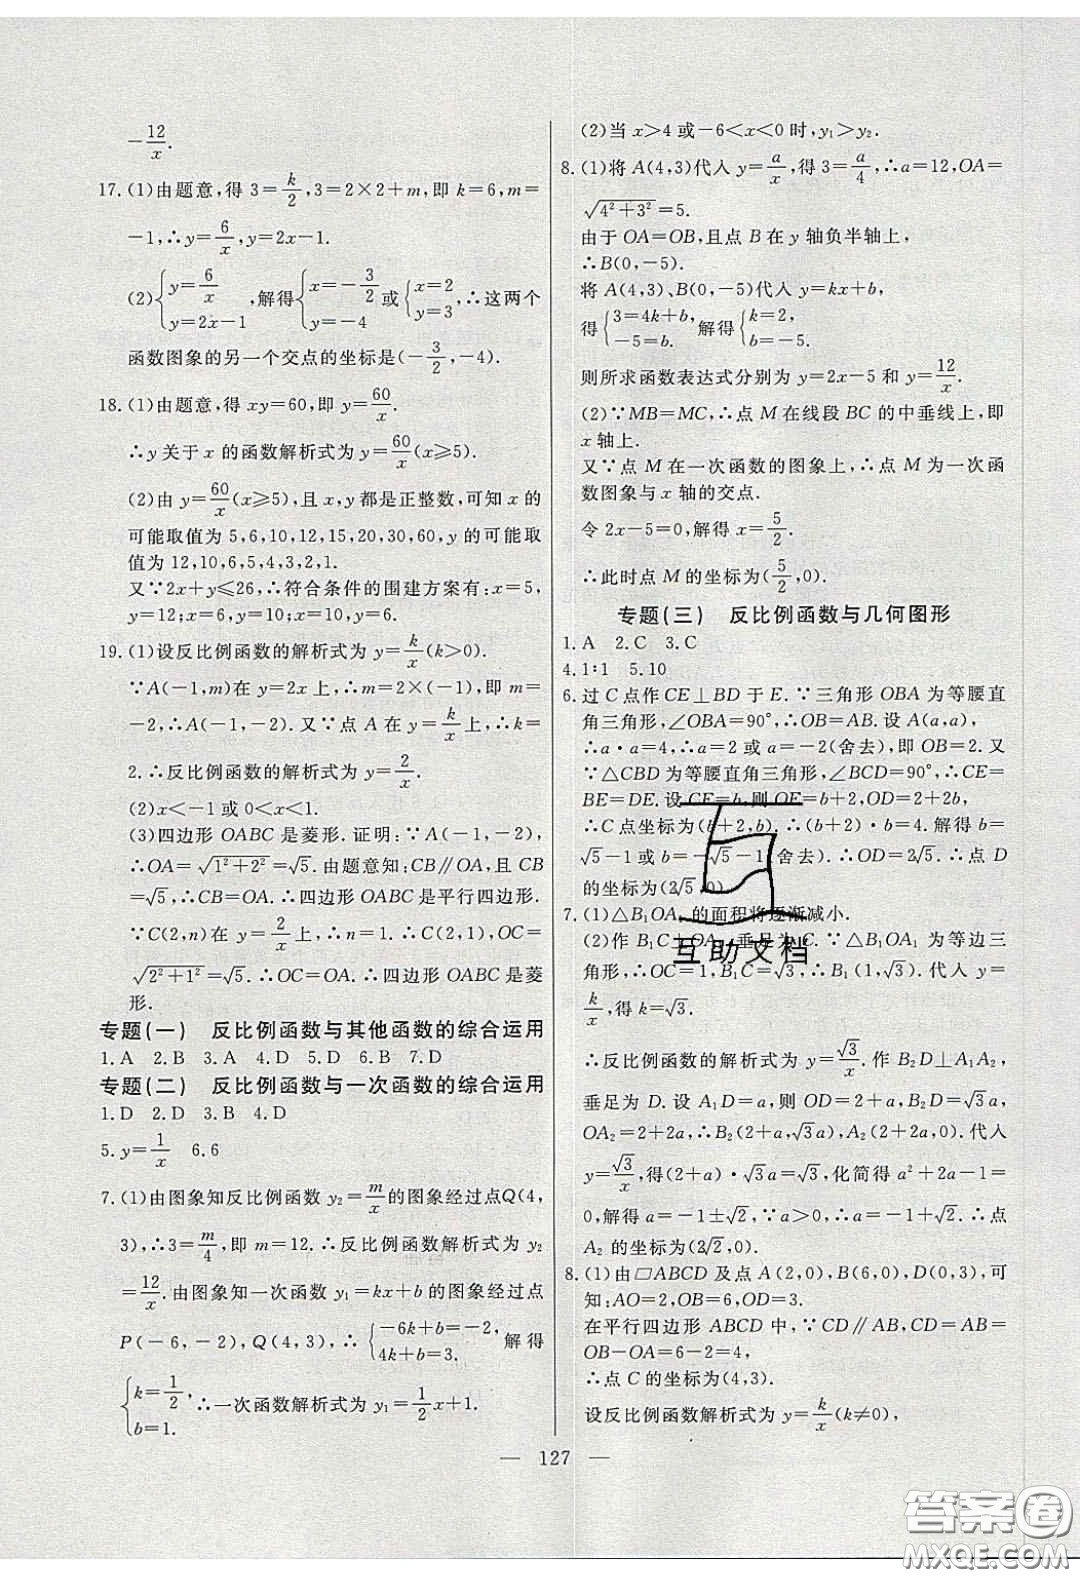 -12/x.
17.(1)由题意,得 3=k/2,3=2×2+m,即 k=6,m=
-1,∴y=6/x,y=2x-1.
(2){y=6/x, y=2x-1,解得{x=-3/2, y=-4 或{x=2, y=3,∴这两个
函数图象的另一个交点的坐标是(-3/2,-4).
18.(1)由题意,得 xy=60,即 y=60/x.
∴y 关于 x 的函数解析式为 y=60/x(x≥5).
(2)由 y=60/x(x≥5),且 x,y 都是正整数,可知 x 的
可能取值为 5,6,10,12,15,20,30,60,y 的可能取
值为 12,10,6,5,4,3,2,1.
又∵2x+y≤26,∴符合条件的围建方案有:x=5,
y=12;x=6,y=10;x=10,y=6.
19.(1)设反比例函数的解析式为 y=k/x(k>0).
∵A(-1,m)在 y=2x 上,∴m=2×(-1),即 m=
-2,∴A(-1,-2).又∵点 A 在 y=k/x上,∴k=
2.∴反比例函数的解析式为 y=2/x.
(2)x<-1 或 0<x<1.
(3)四边形 OABC 是菱形.证明:∵A(-1,-2),
∴OA=√(1²+2²)=√5.由题意知:CB∥OA,且 CB
=√5,∴CB=OA.∴四边形 OABC 是平行四边形.
∵C(2,n)在 y=2/x上,∴n=1.∴C(2,1),OC=
√(2²+1²)=√5.∴OC=OA.∴四边形 OABC 是菱
形.
专题(一) 反比例函数与其他函数的综合运用
1.A 2.B 3.A 4.D 5.D 6.B 7.D
专题(二) 反比例函数与一次函数的综合运用
1.D 2.D 3.B 4.D
5.y=1/x 6.6
7.(1)由图象知反比例函数 y₂=m/x的图象经过点Q(4,
3),∴3=m/4,即 m=12.∴反比例函数解析式为 y₂
=12/x.由图象知一次函数 y₁=kx+b 的图象经过点
P(-6,-2),Q(4,3),∴{-6k+b=-2, 4k+b=3. 解得
{k=1/2, b=1. ∴一次函数解析式为 y₁=1/2x+1.
(2)当 x>4 或-6<x<0 时,y₁>y₂.
8.(1)将 A(4,3)代入 y=a/x,得 3=a/4,∴a=12,OA=
√(4²+3²)=5.
由于 OA=OB,且点 B 在 y 轴负半轴上,
∴B(0,-5).
将 A(4,3)、B(0,-5)代入 y=kx+b,
得{3=4k+b, -5=b. 解得{k=2, b=-5.
则所求函数表达式分别为 y=2x-5 和 y=12/x.
(2)∵MB=MC,∴点 M 在线段 BC 的中垂线上,即
x 轴上.
又∵点 M 在一次函数的图象上,∴点 M 为一次函
数图象与 x 轴的交点.
令 2x-5=0,解得 x=5/2.
∴此时点 M 的坐标为(5/2,0).
专题(三) 反比例函数与几何图形
1.A 2.C 3.C
4.1∶1 5.10
6.过 C 点作 CE⊥BD 于 E.∵三角形 OBA 为等腰直
角三角形,∠OBA=90°,∴OB=AB.设 A(a,a),
∴a·a=4,∴a=2 或 a=-2(舍去),即 OB=2.又
∵△CBD 为等腰直角三角形,∠BCD=90°,∴CE=
BE=DE.设 CE=b,则 OE=b+2,OD=2+2b,
∴C 点坐标为(b+2,b).∴(b+2)·b=4.解得 b=
√5-1 或 b=-√5-1(舍去).∴OD=2√5.∴点 D
的坐标为(2√5,0)
7.(1)△B₁OA₁ 的面积将逐渐减小.
(2)作 B₁C⊥OA₁ 垂足为 C.∵△B₁OA₁ 为等边三
角形,∴OC=1,B₁C=√3,∴B₁(1,√3).代入 y=
k/x,得 k=√3.
∴反比例函数的解析式为 y=√3/x.作 B₂D⊥A₁A₂,
垂足为 D.设 A₁D=a,则 OD=2+a,B₂D=√3a,
OA₂=2+2a,∴B₂(2+a,√3a),A₂(2+2a,0).代入
y=√3/x,得(2+a)·√3a=√3,化简得 a²+2a-1=
0,解得 a=-1±√2,∵a>0,∴a=-1+√2.∴点
A₂ 的坐标为(2√2,0).
8.(1)由▱ABCD 及点 A(2,0),B(6,0),D(0,3),可
知:AO=2,OB=6,OD=3.
在平行四边形 ABCD 中,∵CD∥AB,CD=AB=
OB-OA=6-2=4,
∴点 C 的坐标为(4,3).
设反比例函数解析式为 y=k/x(k≠0),
— 127 —
互助文档
答案圈
MXQE.COM